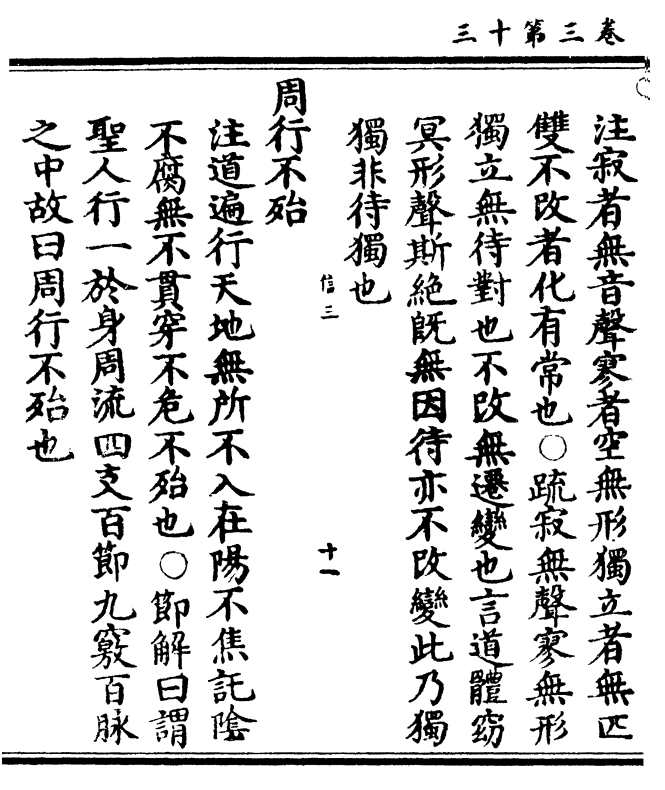 三十第三卷
注寂者無音聲寥者空無形獨立者無匹
雙不改者化有常也○䟽寂無聲寥無形
獨立無待對也不改無遷變也言道體窈
冥形聲斯絶既無因待亦不改變此乃獨
獨非待獨也
信三
十一
周行不殆
注道遍行天地無所不入在陽不焦託陰
不腐無不貫穿不危不殆也○節解曰謂
聖人行一於身周流四支百節九竅百脉
之中故曰周行不殆也